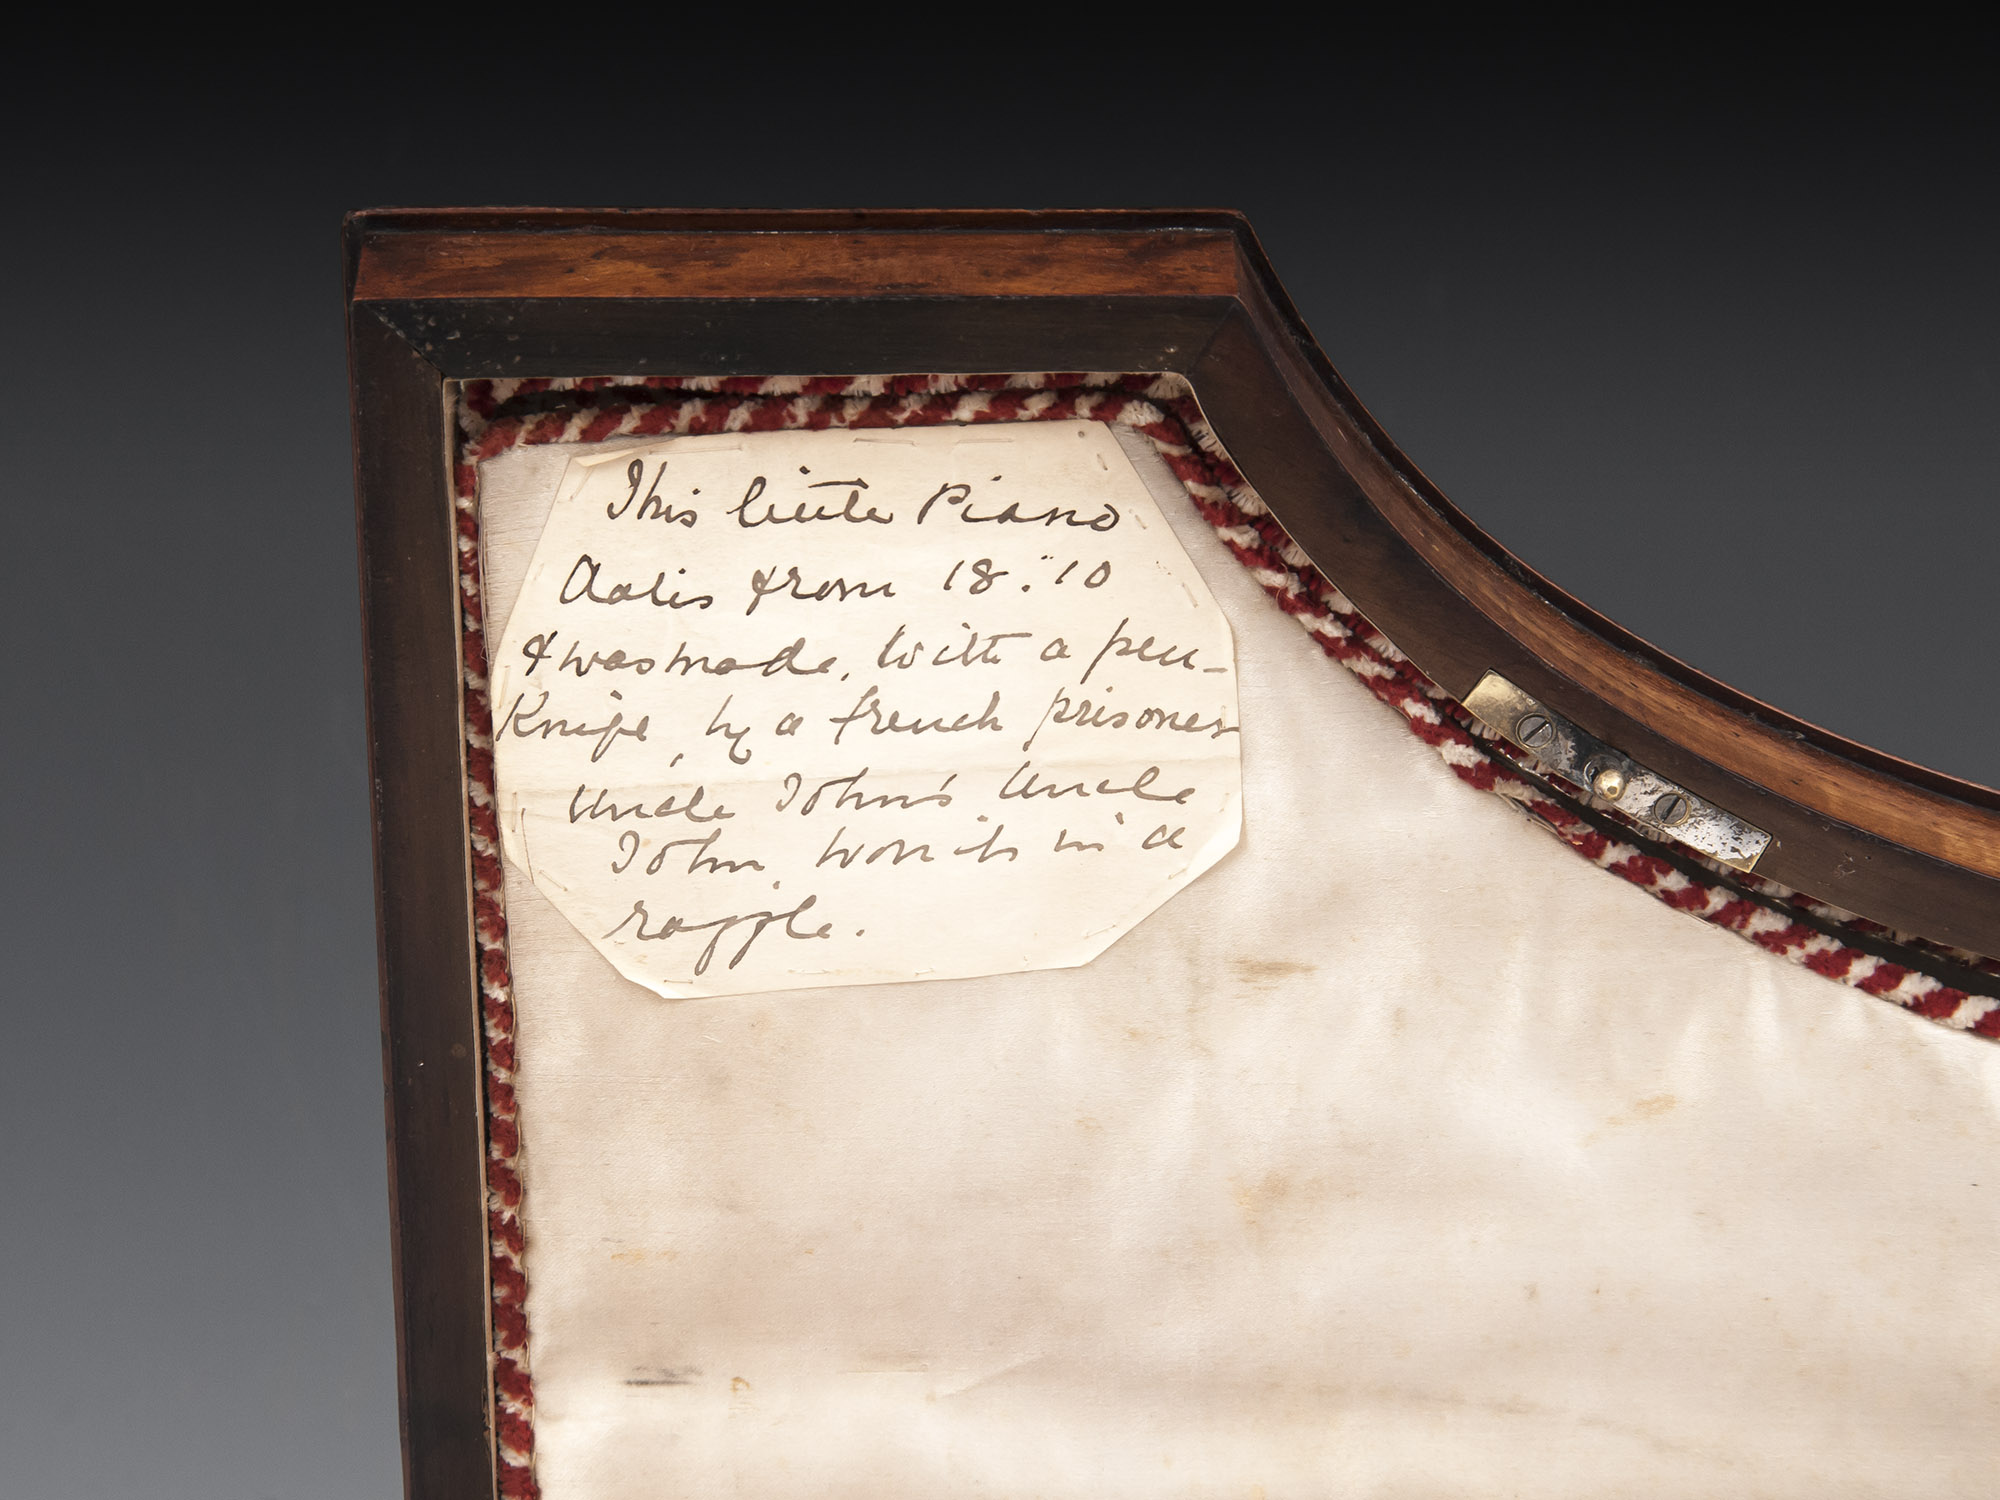 This little Piano
dates from 18."10
& was made, with a pen-
Knife, by a french prisoner
Uncle John's Uncle
John, won it in a
raffle.